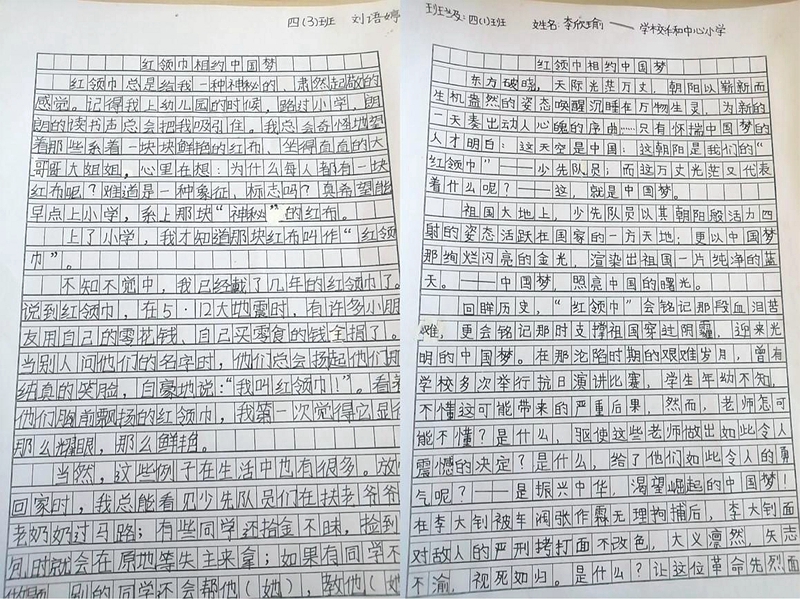 四(3)班 刘语婷
红领巾相约中国梦
红领巾总是给我一种神秘的、肃然起敬的
感觉。记得我上幼儿园的时候,路过小学,朗
朗的读书声总会把我吸引住。我总会奇怪地望
着那些系着一块块鲜艳的红布、坐得直直的大
哥哥大姐姐,心里在想:为什么每人都有一块
红布呢?难道是一种象征、标志吗?真希望能
早点上小学,系上那块“神秘”的红布。
上了小学,我才知道那块红布叫作“红领
巾”。
不知不觉中,我已经戴了几年的红领巾了。
说到红领巾,在5·12大地震时,有许多小朋
友用自己的零花钱、自己买零食的钱全捐了。
当别人问他们的名字时,他们总会扬起他们
纯真的笑脸,自豪地说:“我叫红领巾!”。看着
他们胸前飘扬的红领巾,我第一次觉得它显得
那么耀眼,那么鲜艳。
当然,这些例子在生活中也有很多。放
回家时,我总能看见少先队员们在扶老爷爷
老奶奶过马路;有些同学还拾金不昧,捡到
何时就会在原地等失主来拿;如果有同学不
别的同学还会帮他(她),教他(她
班级:四(1)班 姓名:李欣瑜——学校:仁和中心小学
红领巾相约中国梦
东方破晓,天际光芒万丈,朝阳以崭新而
生机盎然的姿态唤醒沉睡在万物生灵,为新的
一天奏出动人心魄的序曲……只有怀揣中国梦的
人才明白:这天空是中国;这朝阳是我们的“
红领巾”——少先队员;而这万丈光芒又代表
着什么呢?——这,就是中国梦。
祖国大地上,少先队员以其朝阳般活力四
射的姿态活跃在国家的一方天地;更以中国梦
那绚烂闪亮的金光,渲染出祖国一片纯净的蓝
天。——中国梦,照亮中国的曙光。
回眸历史,“红领巾”会铭记那段血泪苦
难,更会铭记那时支撑祖国穿过阴霾,迎来光
明的中国梦。在那沦陷时期的艰难岁月,曾有
学校多次举行抗日演讲比赛,学生年幼不知,
不懂这可能带来的严重后果,然而,老师怎可
能不懂?是什么,驱使这些老师做出如此令人
震憾的决定?是什么,给了他们如此令人的勇
气呢?——是振兴中华,渴望崛起的中国梦!
在李大钊被车阀张作霖无理拘捕后,李大钊面
对敌人的严刑拷打面不改色,大义凛然,矢志
不渝,视死如归。是什么?让这位革命先烈面